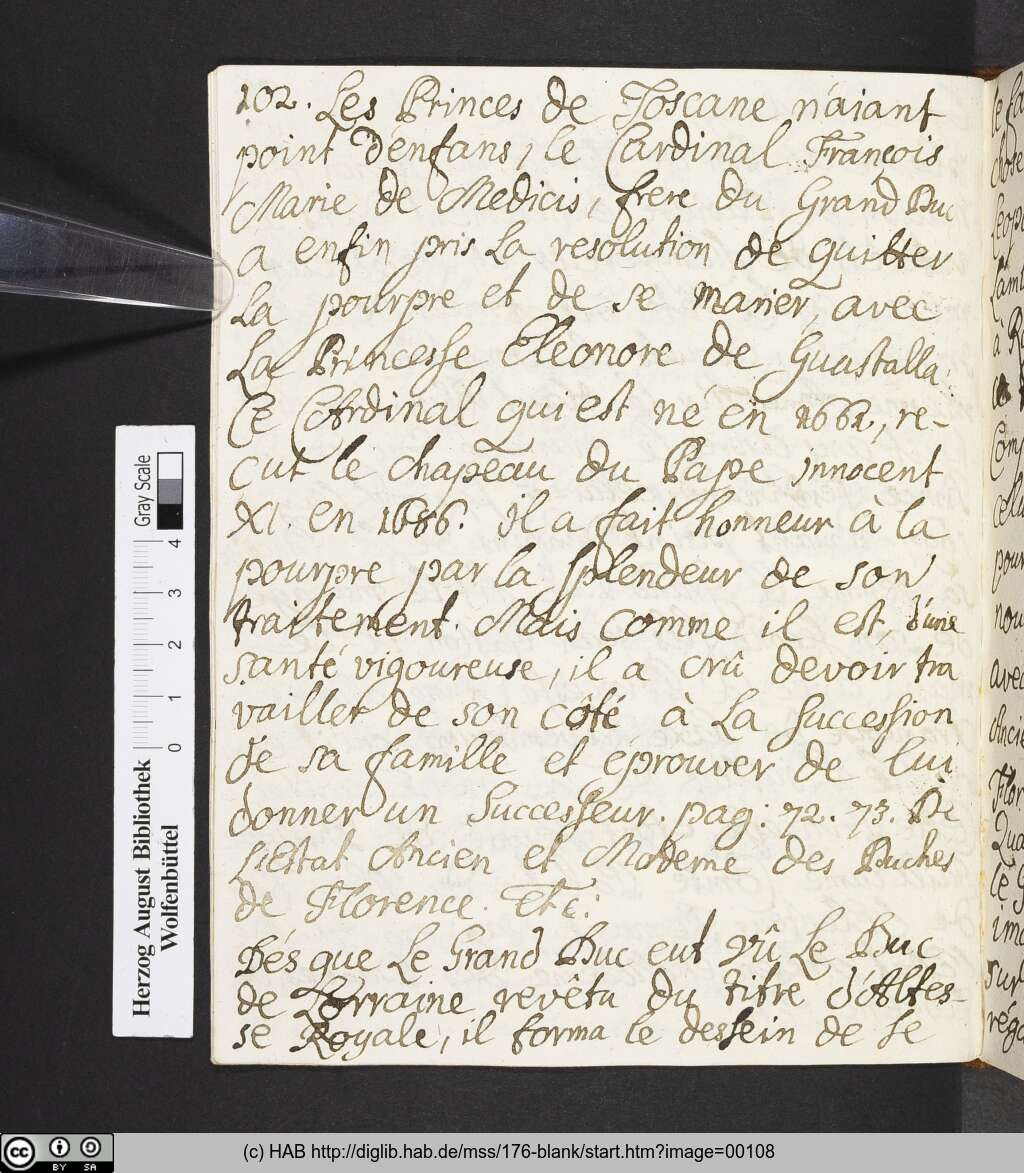 102. Les Princes de Toscane n'aiant
point d'énfans, le Cardinal François
Marie de Medicis, frere du Grand Duc
a enfin pris La resolution de quitter
La pourpre et de se marier, avec
La Princesse Eléonore de Guastalla.
Ce Cardinal qui est né en 1662, re-
çut le chapeau du Pape innocent
XI. en 1686. il a fait honneur à la
pourpre par la splendeur de son
traitement. Mais comme il est, d'une
santé vigoureuse, il a crû devoir tra
vailler de son côté à La succession
de sa famille et éprouver de lui
donner un Successeur. pag: 72. 73. De
L'Estat Ancien et Moderne des Duches
de Florence. Etc:
Dés que Le Grand Duc eut vû Le Duc
de Lorraine revêtu du titre d'Altes-
se Royale, il forma le dessein de se
le
chose
Leop
à
Com
cell
pour
nou
avec
Ancie
Flor
Qua
Le G
sur
Herzog August Bibliothek
Wolfenbüttel
Gray Scale
0 1 2 3 4
cc BY SA
(c) HAB http://diglib.hab.de/mss/176-blank/start.htm?image=00108